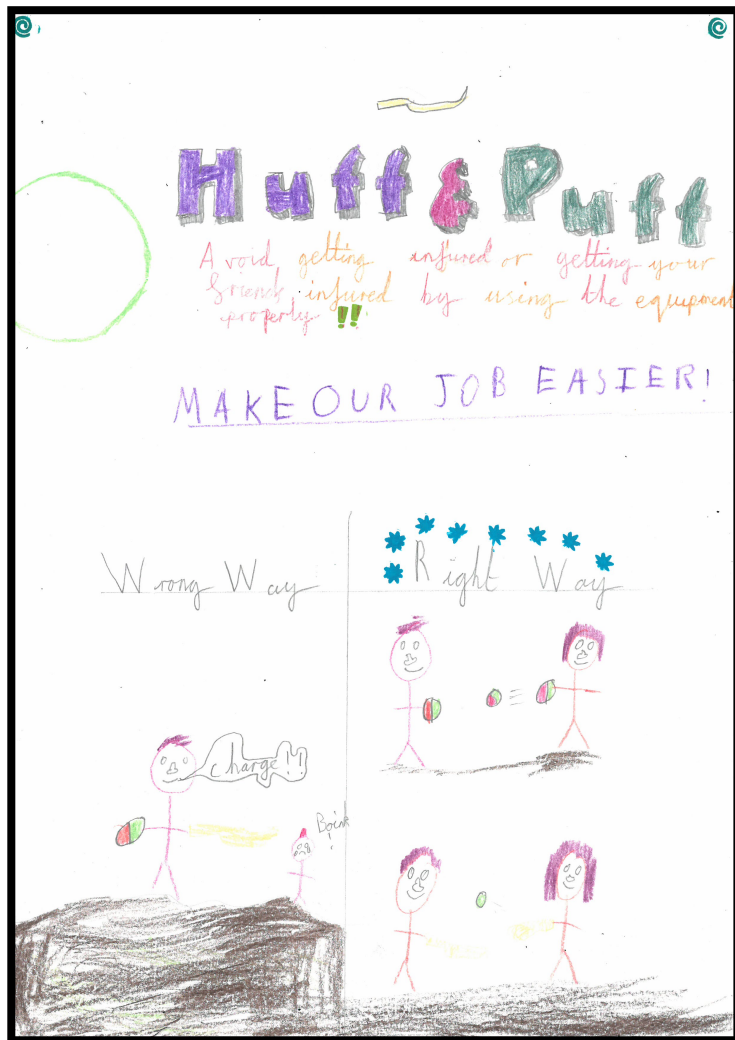 Huff & Puff
Avoid getting injured or getting your
friends injured by using the equipment
properly !!
MAKE OUR JOB EASIER!
Wrong Way
Right Way
Charge!!
Boink!